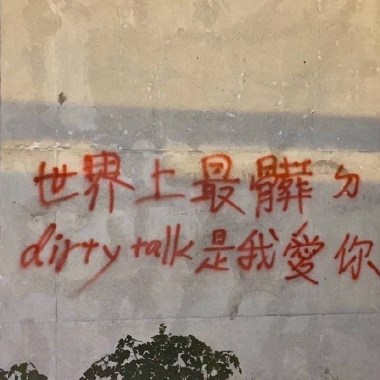 世界上最髒ㄉ
dirty talk是我愛你